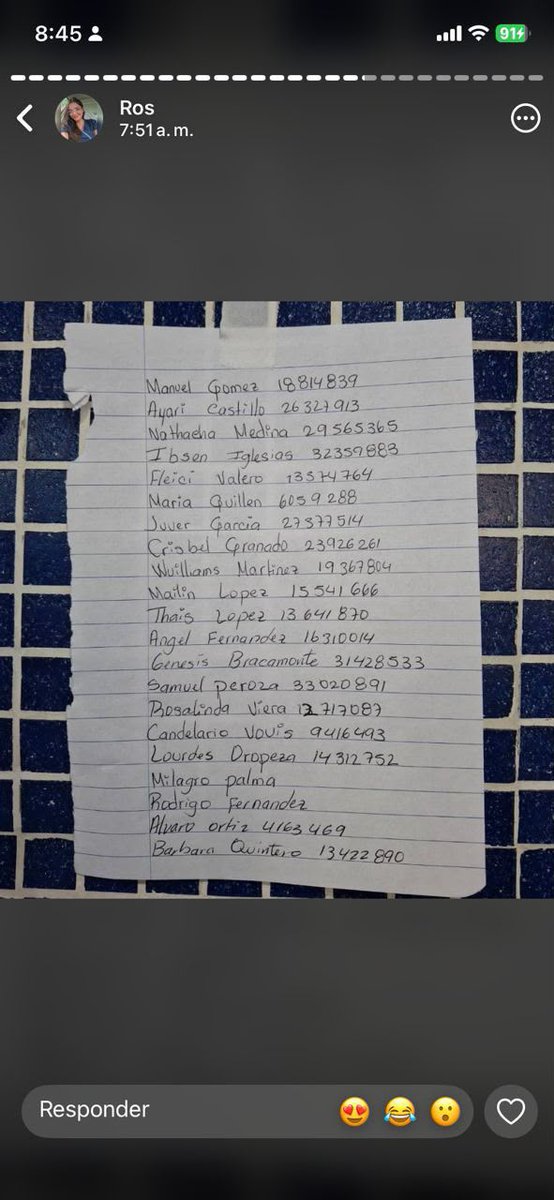 8:45
91
Ros
7:51 a. m.
Manuel Gomez 18814839
Ayari Castillo 26327913
Nathacha Medina 29565365
Ibsen Iglesias 32359883
Fleici Valero 13574764
Maria Guillen 6059288
Juver Garcia 27377514
Crisbel Granado 23926261
Wuilliams Martinez 19367804
Mailin Lopez 15541666
Thais Lopez 13641870
Angel Fernandez 16310014
Genesis Bracamonte 31428533
Samuel peroza 33020891
Rosalinda Viera 12717087
Candelario 9416493
Lourdes Oropeza 14312752
Milagro palma
Rodrigo Fernandez
Alvaro ortiz 4163469
Barbara Quintero 13422890
Responder